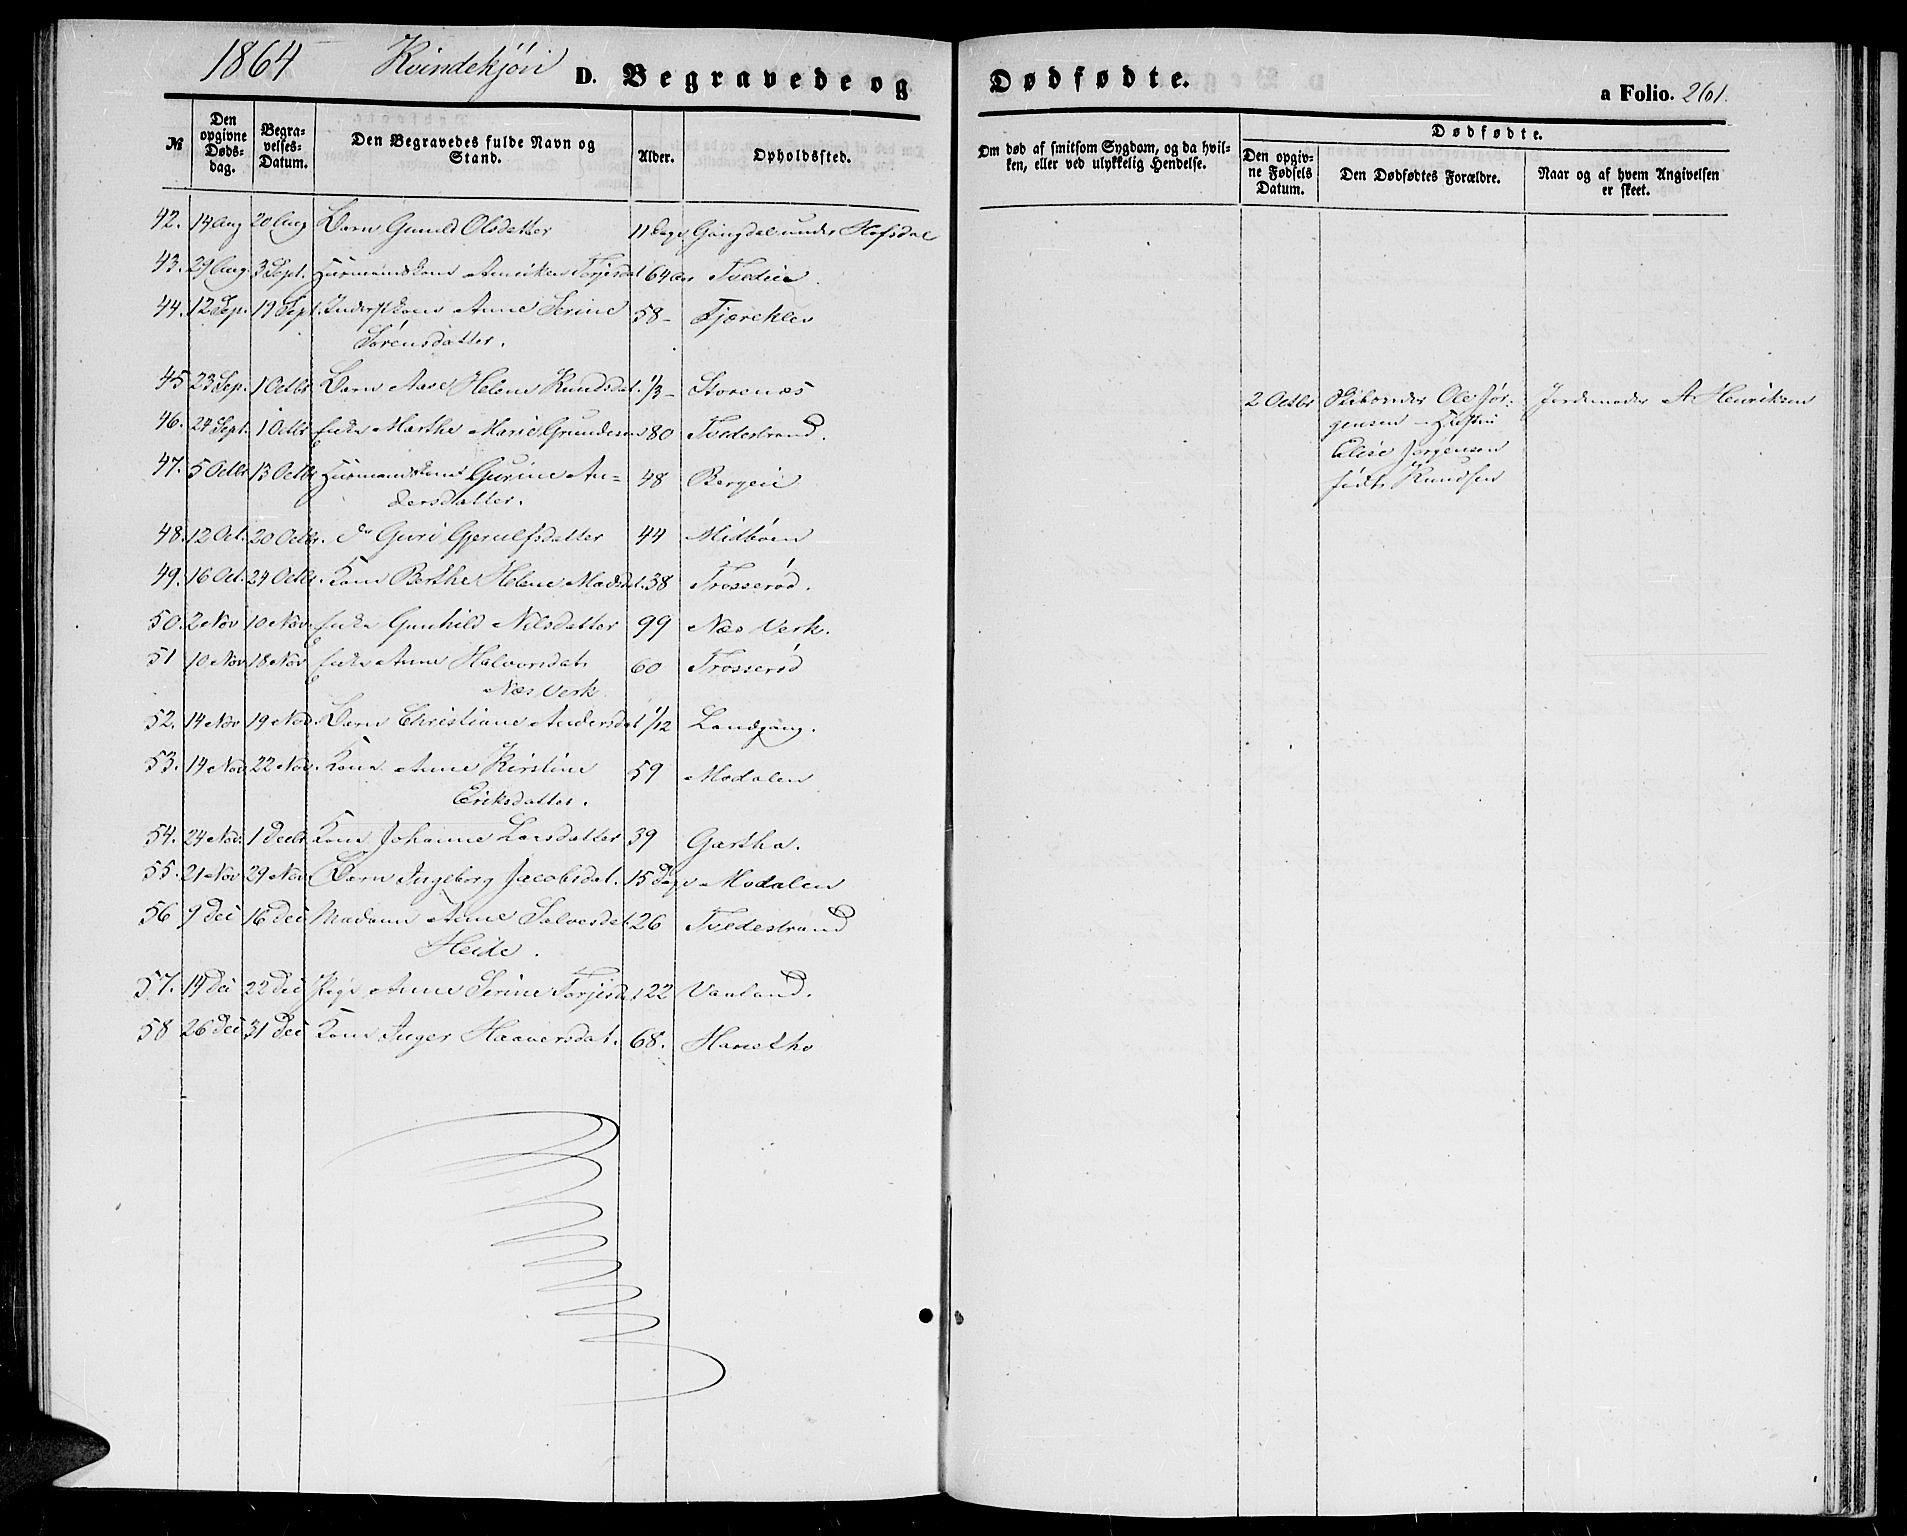 1864 Kvindekjön D. Begravede og Dødfødte. a Folio. 261.
№ Den opgivne Dødsdag. Begravelses-Datum. Den Begravedes fulde Navn og Stand. Alder. Opholdsted. Om død af smitsom Sygdom, og da hvilken, eller ved ulykkelig Hendelse. Dødfødte. Den opgivne Fødsels Datum. Den Dødfødtes Forældre. Naar og af hvem Angivelsen er skeet.
42. 14 Aug 20 Aug Barn Gunild Olsdatter 11 Dage Gangdal under Hofsdal
43. 29 Aug 3 Sept. Huusmandskone Anniken Torjesdat 64 Aar Tvedeie.
44. 12 Sep. 19 Sept. Inderstkone Anne Serine 58 - Tjæreklev
Sörensdatter.
45 23 Sep. 1 Octbr Barn Aase Helene Knudsdat. 1/3 - Storenæs
2 Octbr Skibstömmer Ole Jör- Jordemoder A Henriksen
46. 24 Sept. 1 Octbr Enke Marthe Marie Grundesen 80 Tvedestrand.
gensen - Hustru
Elise Jørgensen
47. 5 Octbr 13 Octbr Huusmandskone Gurine An- 48 Bergeie
født Knudsen
dersdatter.
48. 12 Oct. 20 Octbr. do Guri Gjerulfsdatter 44 Midböen
49. 16 Oct. 24 Octbr. Kone Berthe Helene Madsdat. 38 Trosseröd.
50. 2 Nov 10 Nov. Enke Gunhild Nilsdatter 99 Næs Verk.
51 10 Nov 18 Nov Enke Anne Halvorsdat. 60 Trosseröd
Næs Verk.
52. 14 Nov 19 Nov Barn Christiane Andersdat 1/12 Landgang.
53. 14 Nov 22 Nov. Kone Anne Kirstine 59 Modalen
Eriksdatter.
54. 24 Nov. 1 Decbr Kone Johanne Larsdatter 39 Gartha.
55. 21 Nov 29 Nov Barn Ingeborg Jacobsdat. 15 Dage Modalen
56 9 Dec 16 Dec Madam Anne Salvesdat 26 Tvedestrand
Heide.
57. 14 Dec 22 Dec Pige Anne Serine Torjesdat 22 Vaaland.
58 26 Dec 31 Dec Kone Inger Haaversdat. 68. Hanetho